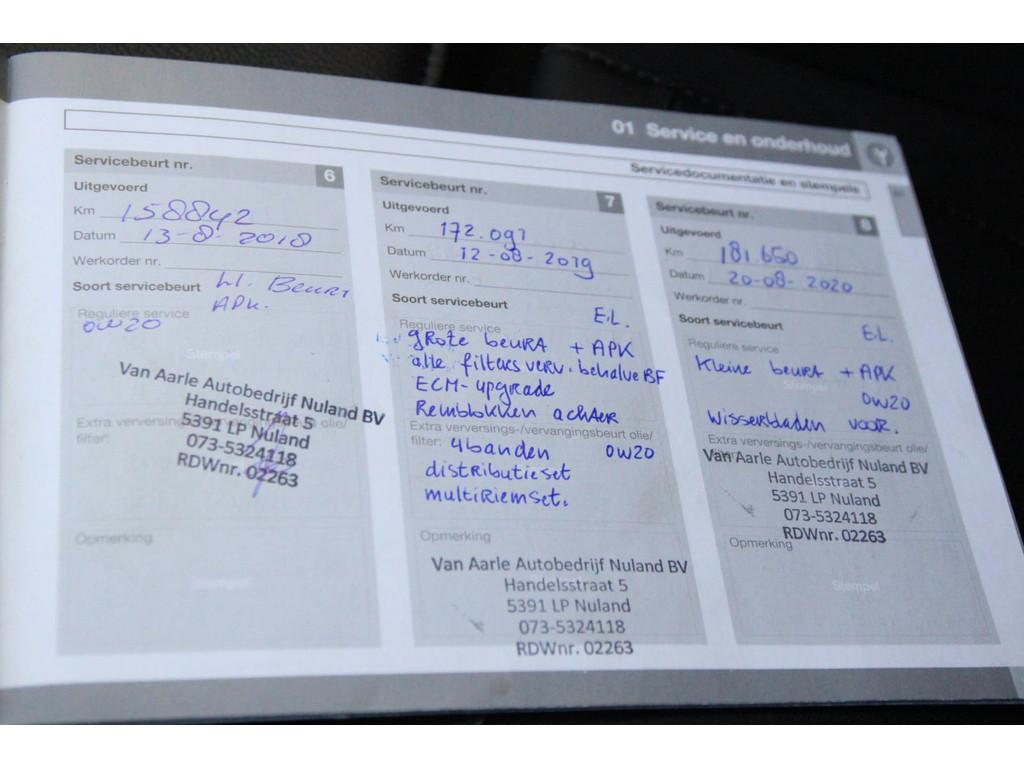 01 Service en onderhoud
Servicedocumentatie en stempels
Servicebeurt nr. 6
Uitgevoerd
Km 158842
Datum 13-8-2018
Werkorder nr.
Soort servicebeurt kl. Beurt
APK.
Reguliere service
0W20
Stempel
Van Aarle Autobedrijf Nuland BV
Handelsstraat 5
5391 LP Nuland
073-5324118
RDWnr. 02263
Extra verversings-/vervangingsbeurt olie/
filter:
Opmerking
Stempel
Servicebeurt nr. 7
Uitgevoerd
Km 172.091
Datum 12-08-2019
Werkorder nr.
Soort servicebeurt
E.L.
Reguliere service
grote beurt + APK
alle filters verv. behalve BF
ECM-upgrade
Remblokken achter
Extra verversings-/vervangingsbeurt olie/
filter: 4banden 0W20
distributieset
multiriemset.
Opmerking
Van Aarle Autobedrijf Nuland BV
Handelsstraat 5
5391 LP Nuland
073-5324118
RDWnr. 02263
Servicebeurt nr. 8
Uitgevoerd
Km 181.650
Datum 20-08-2020
Werkorder nr.
Soort servicebeurt
E.L.
Reguliere service
Kleine beurt + APK
Stempel
0W20
Wisserbladen voor.
Extra verversings-/vervangingsbeurt olie/
Van Aarle Autobedrijf Nuland BV
Handelsstraat 5
5391 LP Nuland
073-5324118
RDWnr. 02263
Opmerking
Stempel